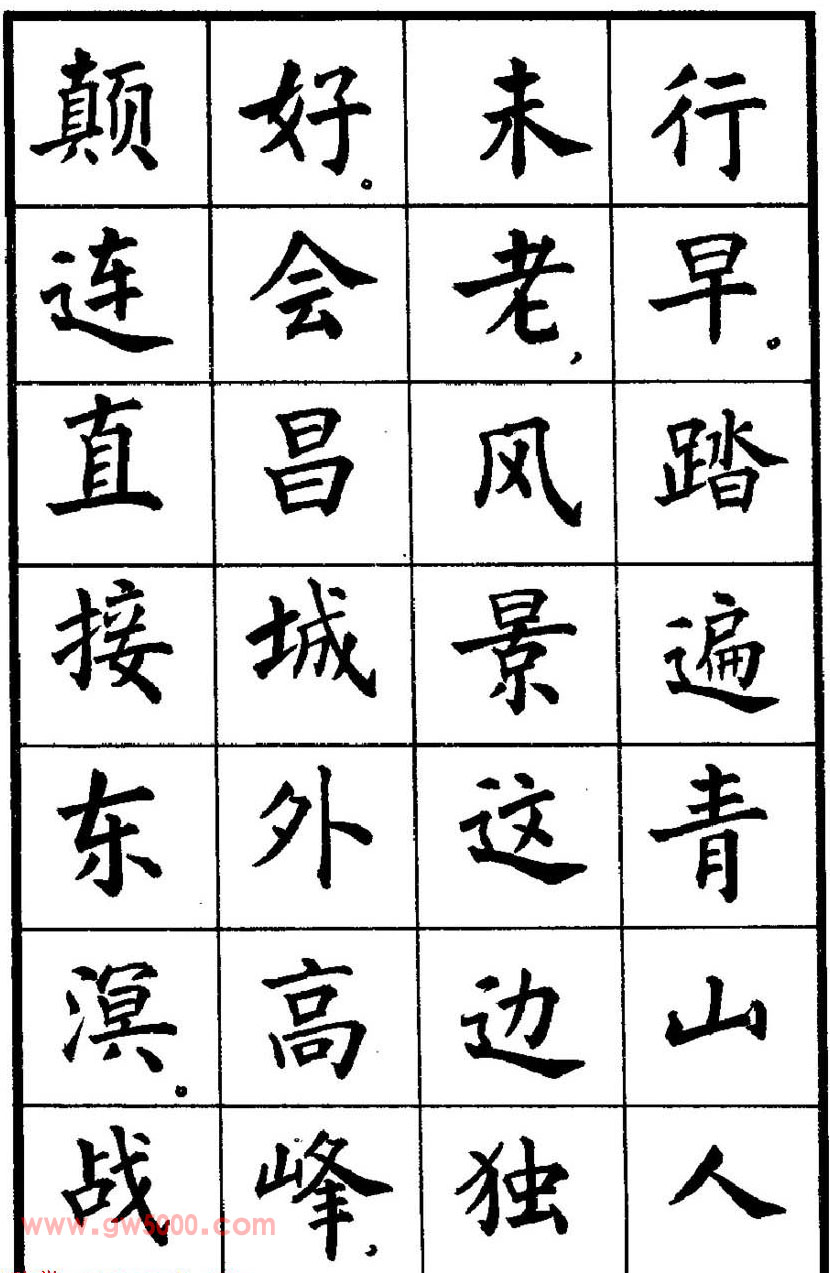 行早。踏遍青山人
未老,风景这边独
好。会昌城外高峰,
颠连直接东溟。战
www.gw5000.com